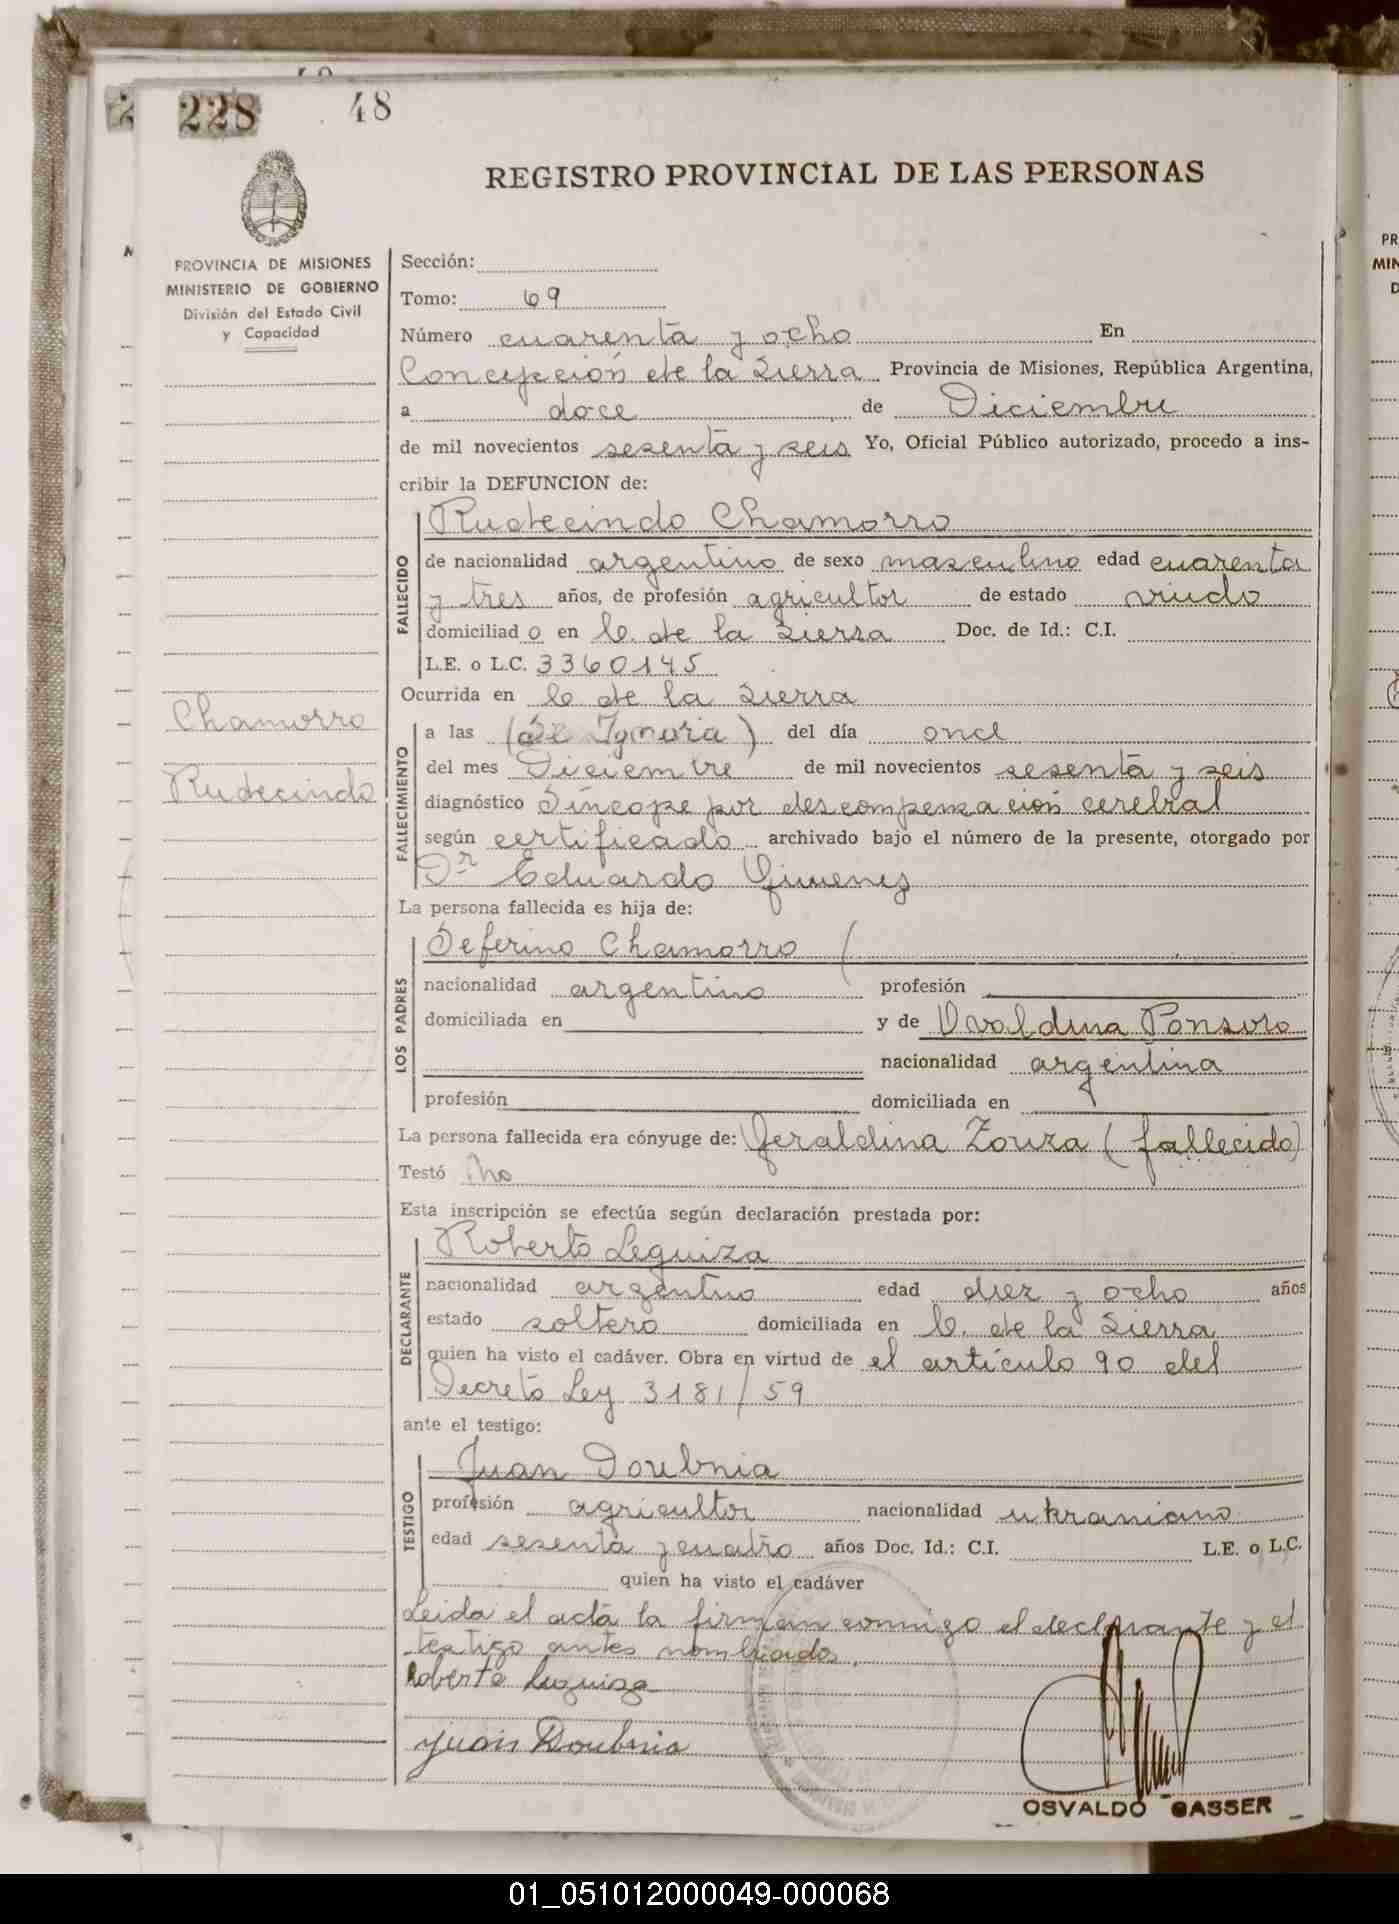 228 48
REGISTRO PROVINCIAL DE LAS PERSONAS
PROVINCIA DE MISIONES
MINISTERIO DE GOBIERNO
División del Estado Civil
y Capacidad
Chamorro
Rudecindo
Sección:
Tomo: 69
Número cuarenta y ocho En
Concepción de la Sierra Provincia de Misiones, República Argentina,
a doce de Diciembre
de mil novecientos sesenta y seis Yo, Oficial Público autorizado, procedo a ins-
cribir la DEFUNCION de:
FALLECIDO
Rudecindo Chamorro
de nacionalidad argentino de sexo masculino edad cuarenta
y tres años, de profesión agricultor de estado viudo
domiciliado en C. de la Sierra Doc. de Id.: C.I.
L.E. o L.C. 3360145
Ocurrida en C. de la Sierra
FALLECIMIENTO
a las (Se Ignora) del día once
del mes Diciembre de mil novecientos sesenta y seis
diagnóstico Síncope por descompensación cerebral
según certificado archivado bajo el número de la presente, otorgado por
Dr Eduardo Gimenez
La persona fallecida es hija de:
LOS PADRES
Seferino Chamorro (
nacionalidad argentino profesión
domiciliada en y de Ovaldina Ponsoro
nacionalidad argentina
profesión domiciliada en
La persona fallecida era cónyuge de: Geraldina Zouza (fallecido)
Testó No
Esta inscripción se efectúa según declaración prestada por:
DECLARANTE
Roberto Leguiza
nacionalidad argentino edad diez y ocho años
estado soltero domiciliada en C. de la Sierra
quien ha visto el cadáver. Obra en virtud de el artículo 90 del
Decreto Ley 3181/59
ante el testigo:
TESTIGO
Juan Doubnia
profesión agricultor nacionalidad ukraniano
edad sesenta y cuatro años Doc. Id.: C.I. L.E. o L.C.
quien ha visto el cadáver
Leida el acta la firman conmigo el declarante y el
testigo antes nombrados.
Roberto Leguiza
Juan Doubnia
OSVALDO GASSER
01_051012000049-000068